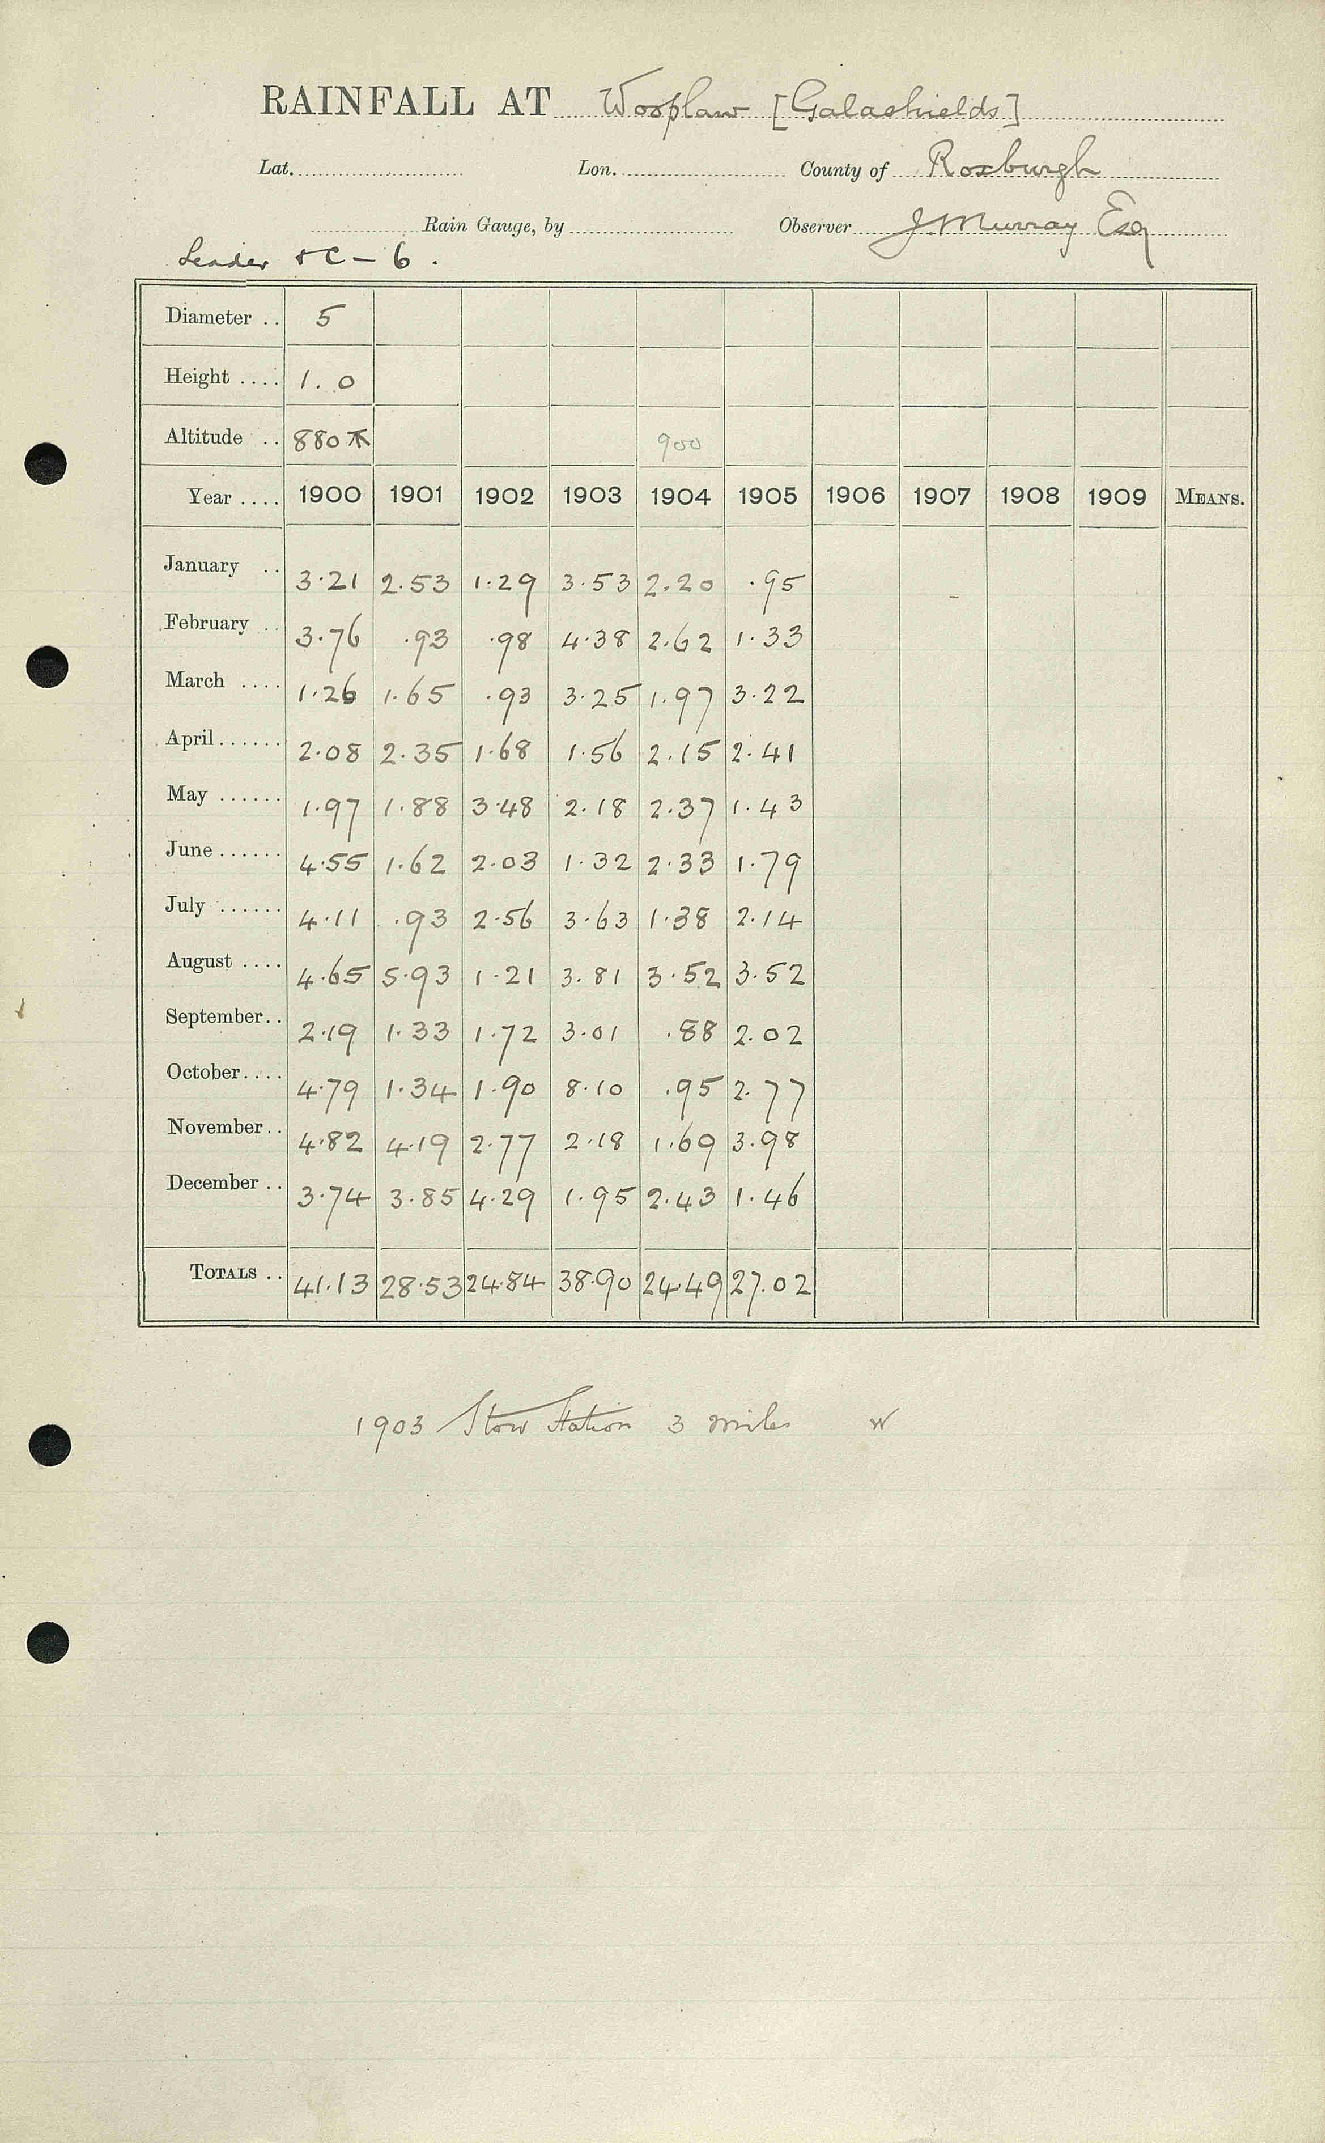 RAINFALL AT Wooplaw [Galashields]
Lat. Lon. County of Roxburgh
Rain Gauge, by Observer J Murray Esq
Leader & C - 6.
Diameter .. 5
Height .... 1. 0
Altitude .. 880 900
Year .... 1900 1901 1902 1903 1904 1905 1906 1907 1908 1909 MEANS.
January .. 3.21 2.53 1.29 3.53 2.20 .95
February .. 3.76 .93 .98 4.38 2.62 1.33
March .... 1.26 1.65 .93 3.25 1.97 3.22
April...... 2.08 2.35 1.68 1.56 2.15 2.41
May ...... 1.97 1.88 3.48 2.18 2.37 1.43
June...... 4.55 1.62 2.03 1.32 2.33 1.79
July ...... 4.11 .93 2.56 3.63 1.38 2.14
August .... 4.65 5.93 1.21 3.81 3.52 3.52
September.. 2.19 1.33 1.72 3.01 .88 2.02
October.... 4.79 1.34 1.90 8.10 .95 2.77
November.. 4.82 4.19 2.77 2.18 1.69 3.98
December .. 3.74 3.85 4.29 1.95 2.43 1.46
TOTALS .. 41.13 28.53 24.84 38.90 24.49 27.02
1903 Stow Station 3 miles W